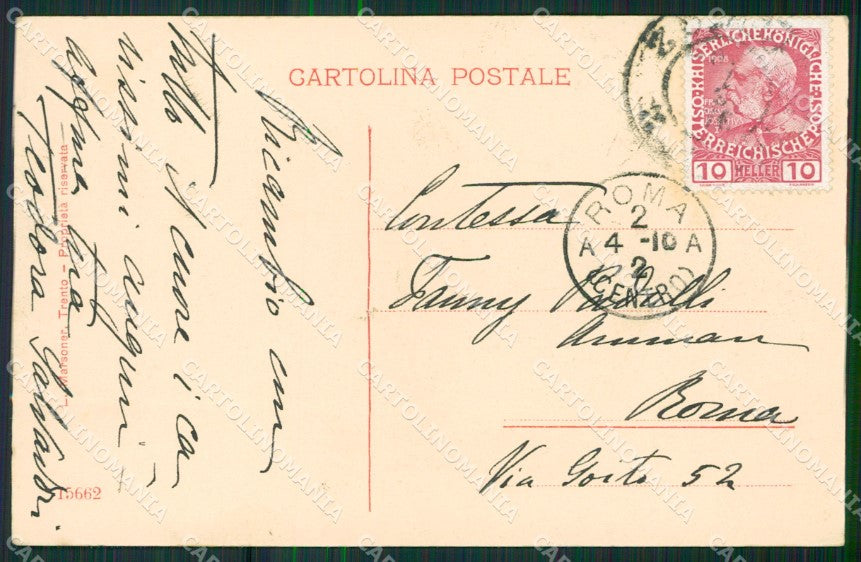 CARTOLINA POSTALE
Ricambio con
tutto il cuore i ca-
rissimi auguri
tua
Teodora
L. Marsoner, Trento – Proprietà riservata
15662
Contessa
Fanny
Amman
Roma
Via Goito 52
ROMA
2
A 4 -10 A
2
(CENTRO)
1908
KAISERLICHE KÖNIGLICHE
ÖSTERREICHISCHE POST
10 HELLER 10
CARTOLINOMANIA